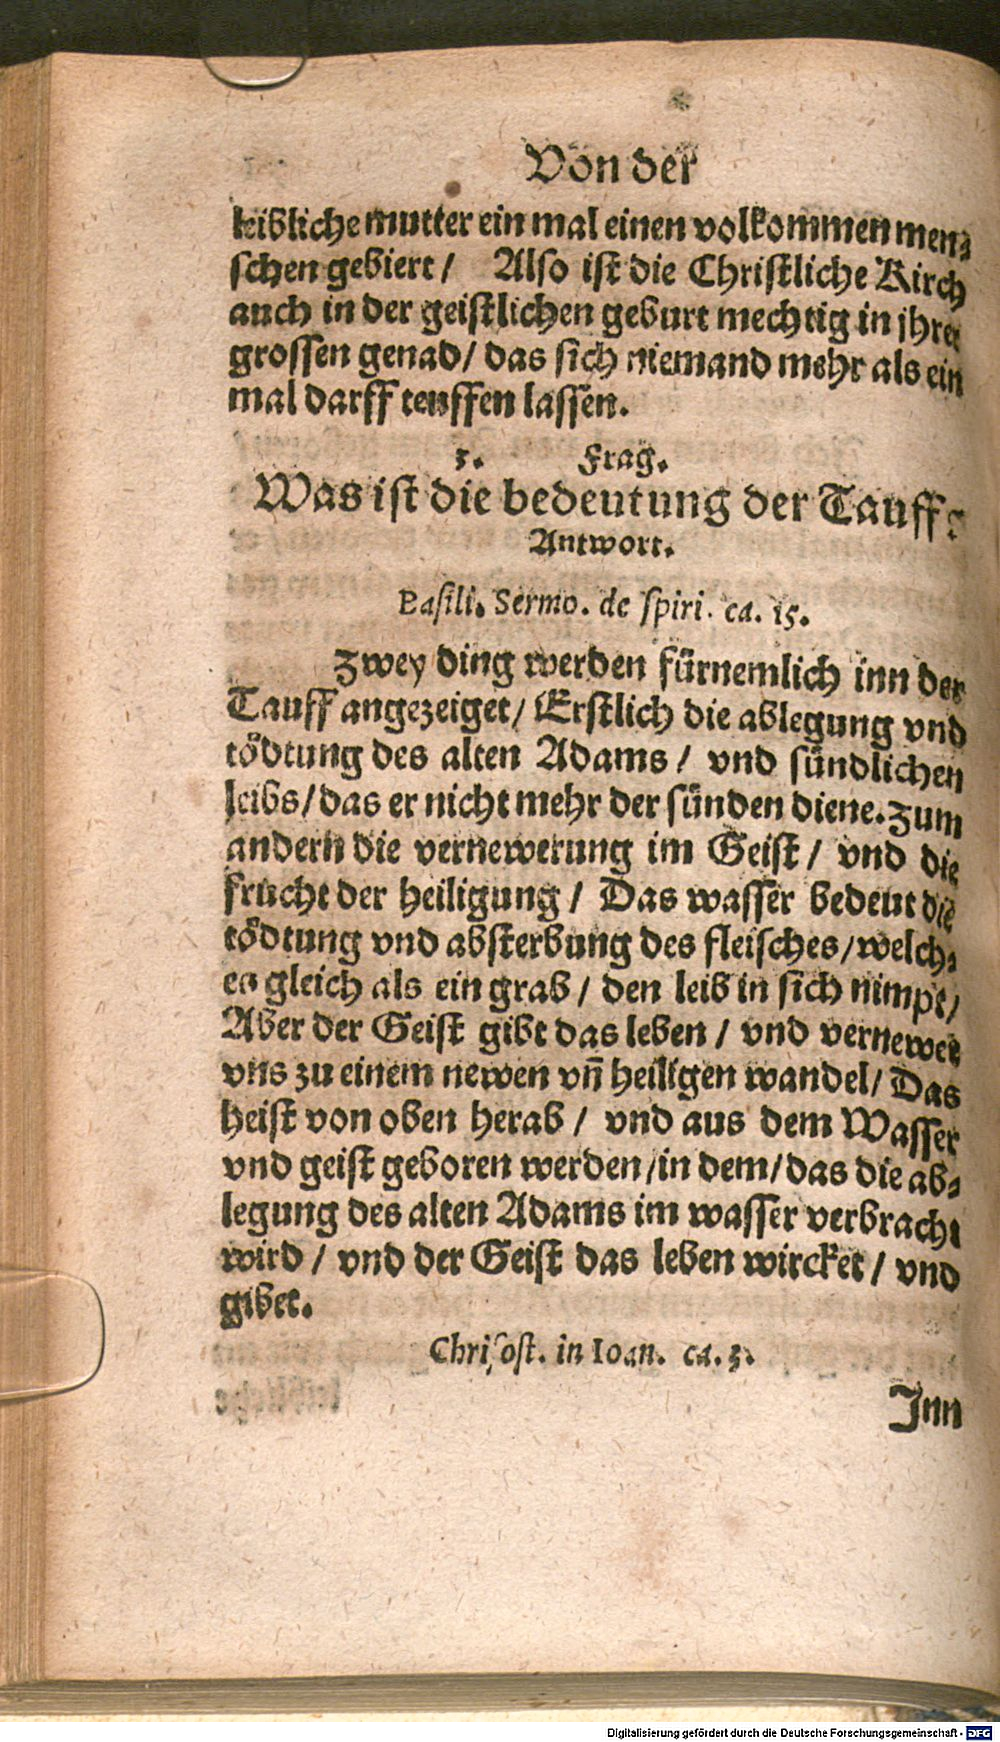 Von der
leibliche mutter ein mal einen volkommen men⸗
schen gebiert / Also ist die Christliche Kirch
auch in der geistlichen geburt mechtig in jhrer
grossen genad / das sich niemand mehr als ein
mal darff teuffen lassen.
3. Frag.
Was ist die bedeutung der Tauff?
Antwort.
Basili. Sermo. de spiri. ca. 15.
Zwey ding werden fürnemlich inn der
Tauff angezeiget / Erstlich die ablegung vnd
tödtung des alten Adams / vnd sündlichen
leibs / das er nicht mehr der sünden diene. Zum
andern die vernewerung im Geist / vnd die
frucht der heiligung / Das wasser bedeut die
tödtung vnd absterbung des fleisches / welch⸗
es gleich als ein grab / den leib in sich nimpt /
Aber der Geist gibt das leben / vnd vernewet
vns zu einem newen vñ heiligen wandel / Das
heist von oben herab / vnd aus dem Wasser
vnd geist geboren werden / in dem / das die ab⸗
legung des alten Adams im wasser verbracht
wird / vnd der Geist das leben wircket / vnd
gibet.
Chrisost. in Ioan. ca. 3.
Inn
Digitalisierung gefördert durch die Deutsche Forschungsgemeinschaft - DFG